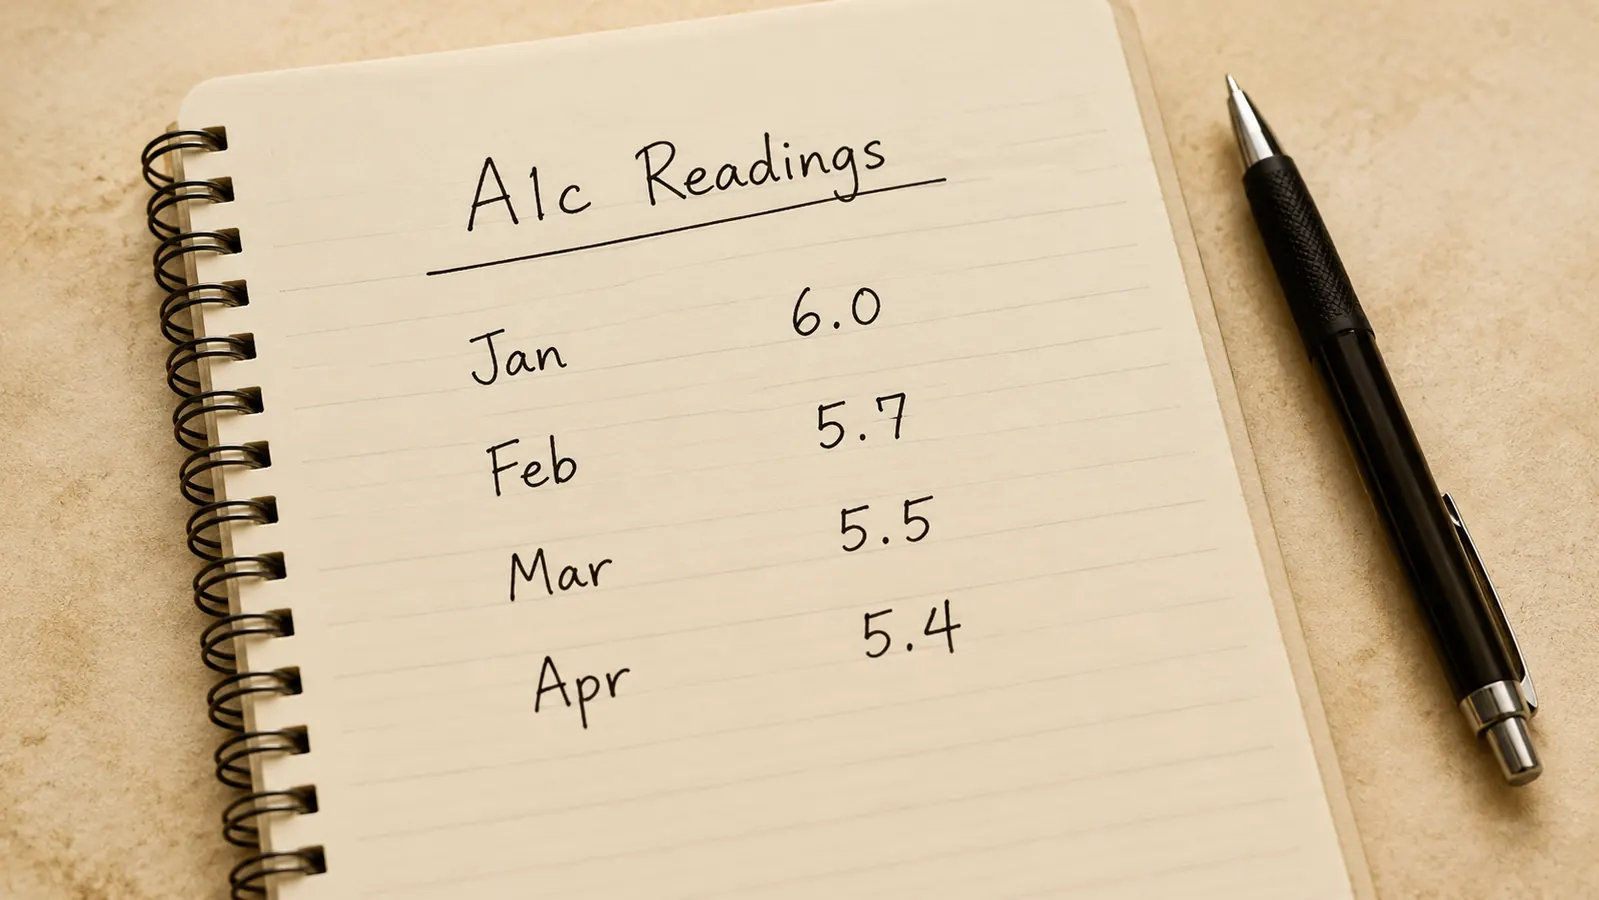 A1c Readings
Jan 6.0
Feb 5.7
Mar 5.5
Apr 5.4